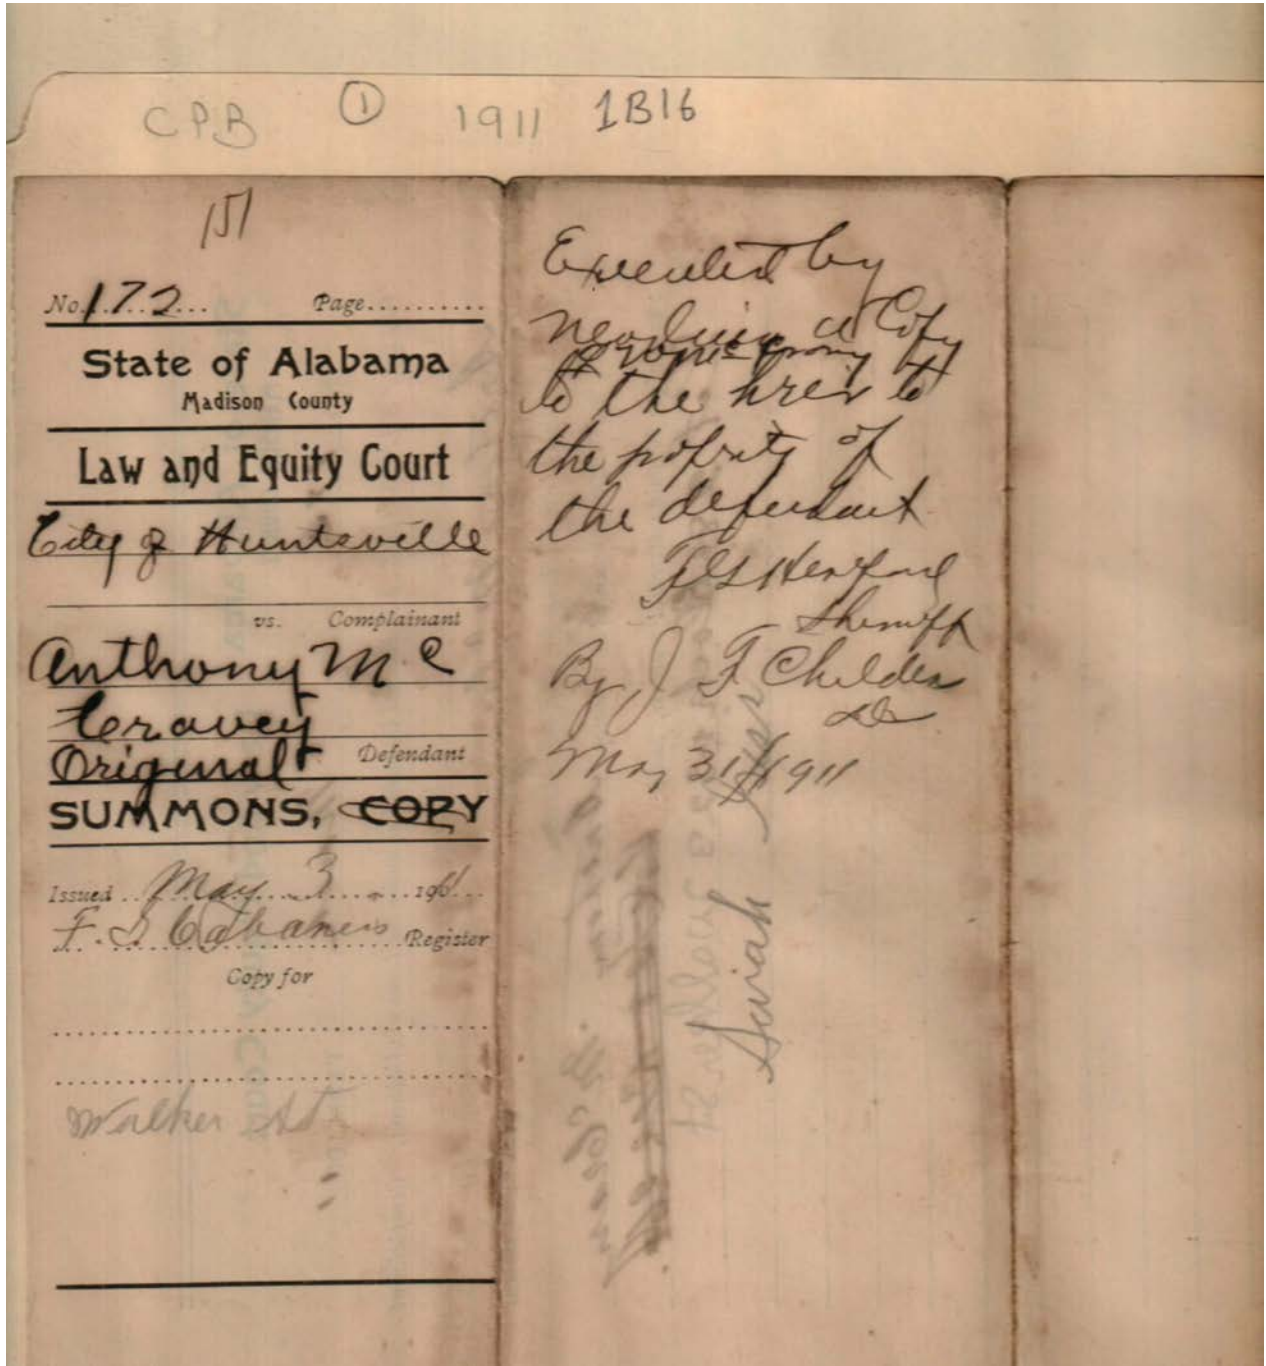 CPB ① 1911 1B16
151
No. 172 Page
State of Alabama
Madison County
Law and Equity Court
City of Huntsville
vs. Complainant
Anthony Mc
Cravey
Original Defendant
SUMMONS, COPY
Issued May 3 1911
F. S Cabaness Register
Copy for
Walker St
" "
Executed by
a Copy
to the hreis to
the pofrity of
the defendant
Sheriff
By J F Childers
DS
May 31st 1911
Sariah